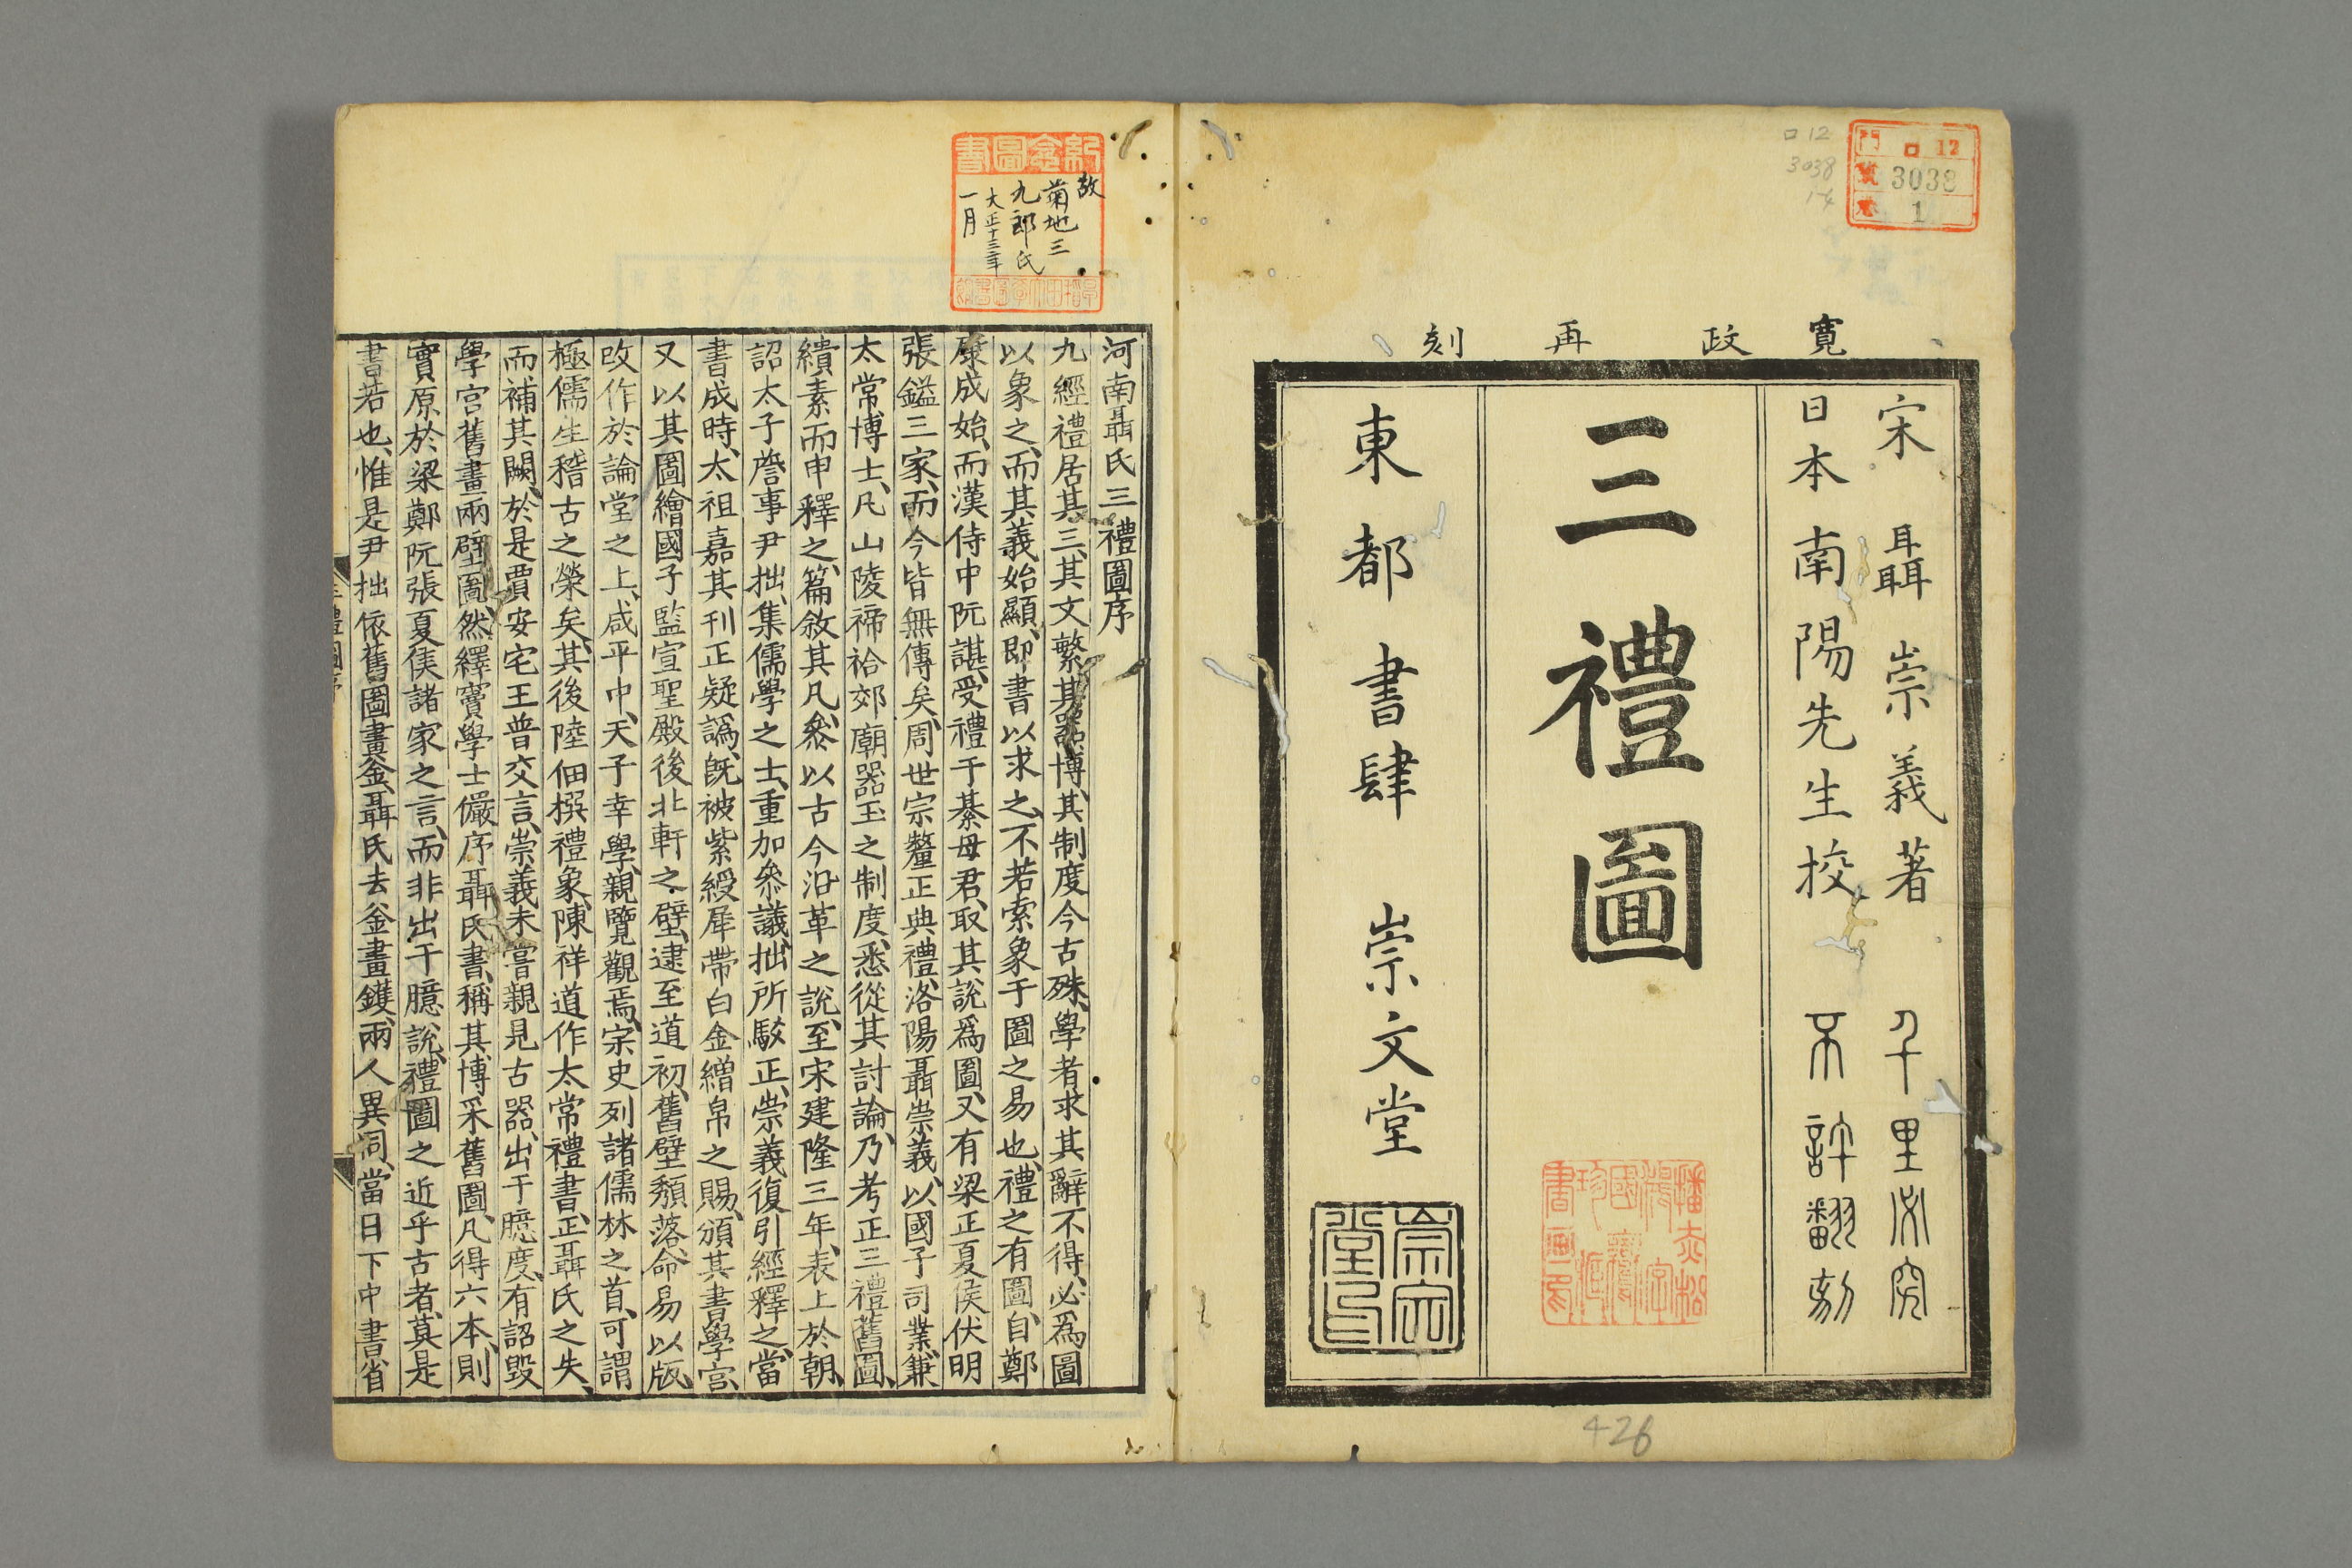 寛政再刻
宋 聶崇義著
日本南陽先生校
千里必究
不許翻刻
三禮圖
東都書肆 崇文堂
門 ロ 12
號 3038
卷 1
ロ12
3038
1-4
426
故
菊地三
九郎氏
大正十三年
一月
河南聶氏三禮圖序
九經禮居其三、其文繁、其器博、其制度今古殊、學者求其辭不得、必爲圖
以象之、而其義始顯、即書以求之、不若索象于圖之易也、禮之有圖、自鄭
康成始、而漢侍中阮諶、受禮于綦母君、取其說爲圖、又有梁正夏侯伏明
張鎰三家、而今皆無傳矣、周世宗釐正典禮、洛陽聶崇義、以國子司業、兼
太常博士、凡山陵禘祫郊廟器玉之制度、悉從其討論、乃考正三禮舊圖、
繢素而申釋之、篇敘其凡、叅以古今沿革之說、至宋建隆三年、表上於朝、
詔太子詹事尹拙、集儒學之士、重加叅議、拙所駁正、崇義復引經釋之、當
書成時、太祖嘉其刊正疑譌、旣被紫綬犀帶白金繒帛之賜、頒其書學宮、
又以其圖繪國子監宣聖殿後北軒之壁、逮至道初、舊壁頽落、命易以版、
改作於論堂之上、咸平中、天子幸學、親覽觀焉、宗史列諸儒林之首、可謂
極儒生稽古之榮矣、其後陸佃撰禮象、陳祥道作太常禮書、正聶氏之失、
而補其闕、於是賈安宅王普交言、崇義未嘗親見古器、出于臆度、有詔毀
學宮舊畫兩壁圖、然繹竇學士儼序聶氏書、稱其博采舊圖、凡得六本、則
實原於梁鄭阮張夏侯諸家之言、而非出于臆說、禮圖之近乎古者、莫是
書若也、惟是尹拙依舊圖畫釜、聶氏去釜畫鑊、兩人異同、當日下中書省